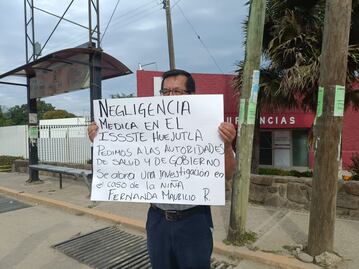 NEGLIGENCIA
MEDICA EN EL
ISSSTE HUEJUTLA
PEDIMOS A LAS AUTORIDADES
DE SALUD Y DE GOBIERNO
SE ABRA UNA INVESTIGACIÓN EN
EL CASO DE LA NIÑA
FERNANDA MAURICIO R.
ENCIAS